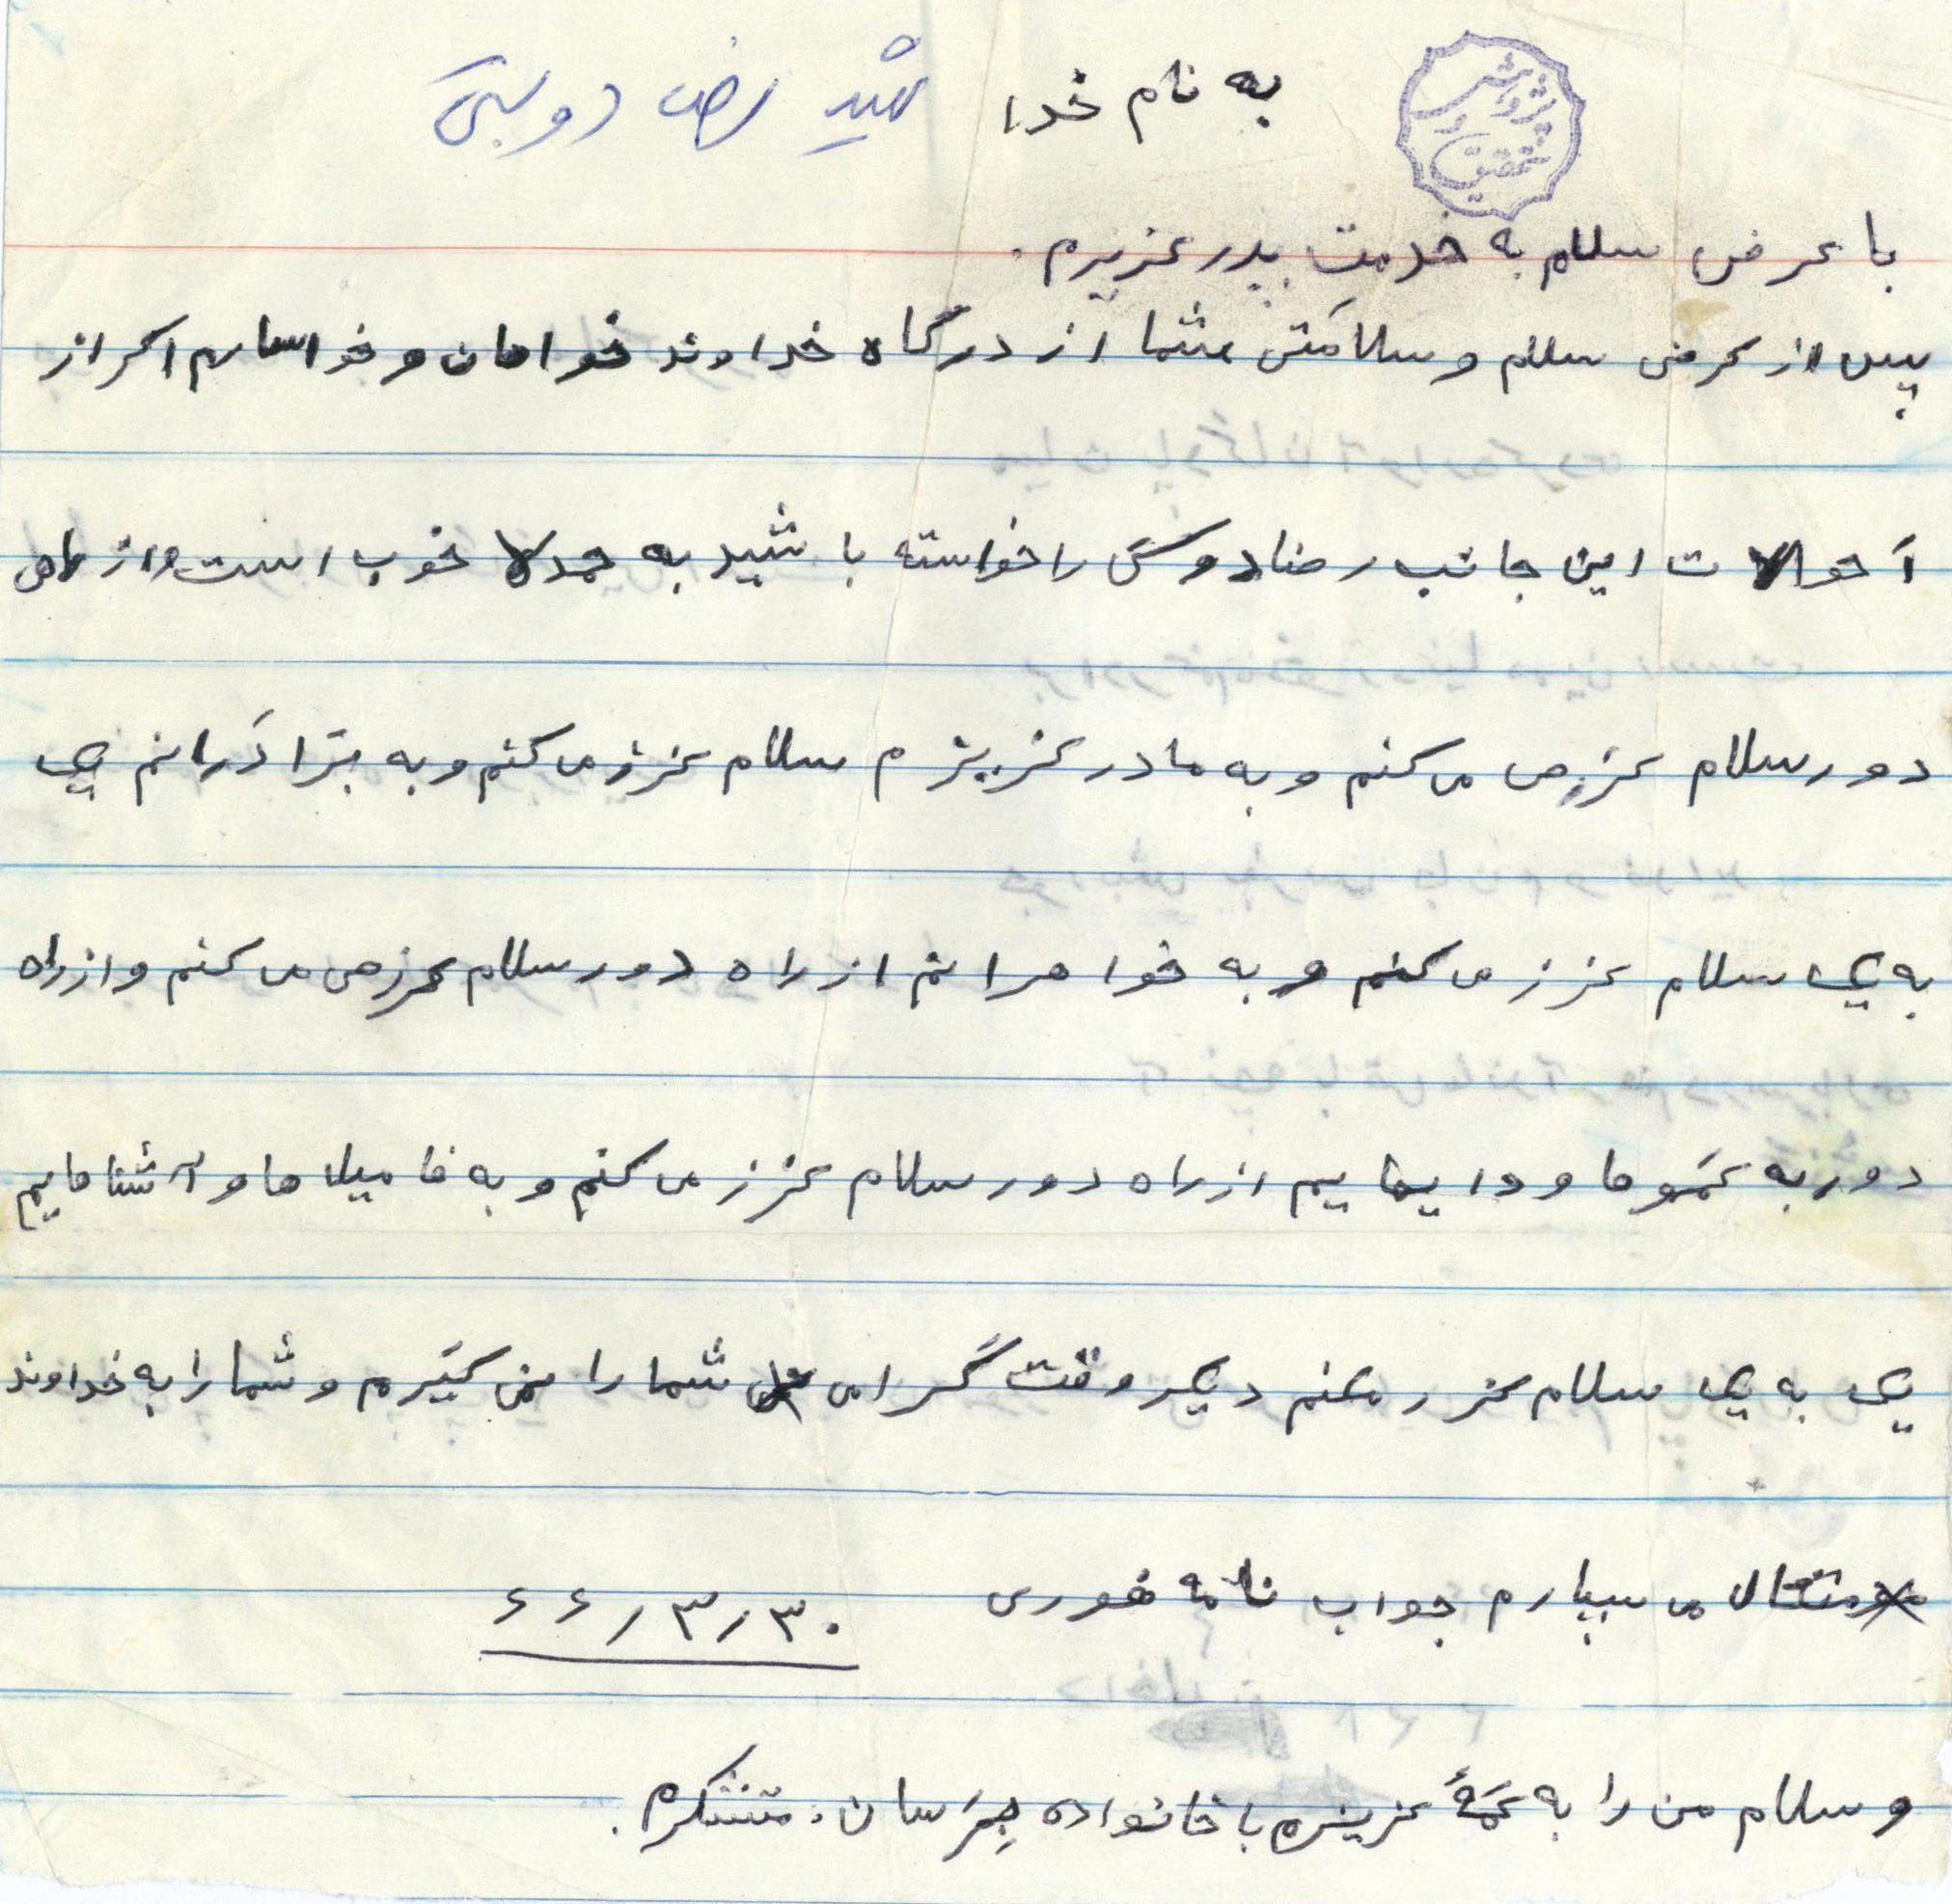 به نام خدا شهید رضا دوستی
پژوهش و تحقیق
با عرض سلام به خدمت پدر عزیزم.
پس از عرض سلام و سلامتی شما از درگاه خداوند خواهان و خواستارم اگر از
اَحوالات این جانب رضا دوستی را خواسته باشید به حمدلا خوب است و از راهی
دور سلام عرزمی می کنم و به مادر عزیزم سلام عرز می کنم و به بَرادَرانم یک
به یک سلام عرز می کنم و به خواهرانم از راه دور سلام عرزمی می کنم و از راه
دور به عَموها و دایهایم از راه دور سلام عرز می کنم و به فامیلا ها و آشناهایم
یک به یک سلام عرز میکنم دیگر وقت گَرامی شما را نمی گیَرم و شما را به خداوند
متعال می سپارم جواب نامه فوری ۶۶/۳/۳۰
و سلام من را به عَمهٔ عزیزم با خانواده بِرَسان. متشکرم.